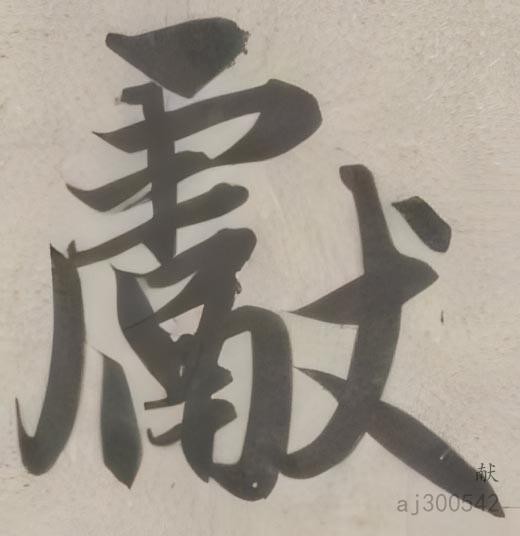 獻
献
aj300542